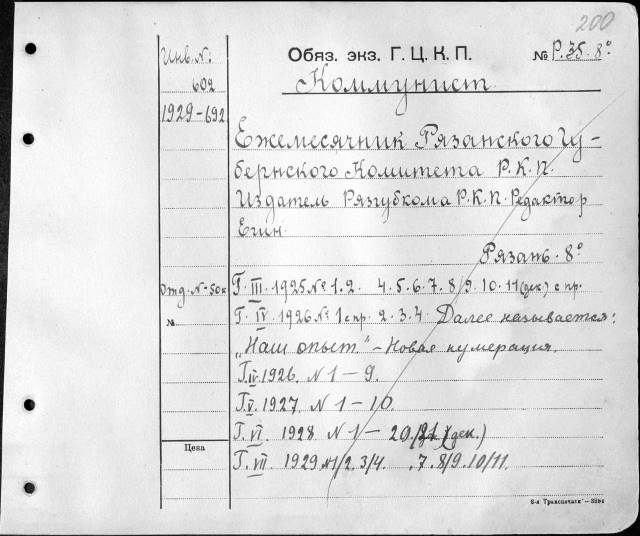 200
Инв. N:
602
1929-692
Обяз. экз. Г. Ц. К. П.
№ Р.35.8°
Коммунист.
Ежемесячник Рязанского Гу-
бернского Комитета Р.К.П.
Издатель Рязгубкома Р.К.П. Редактор
Егин.
Рязань. 8°
Отд. N-50к
№
Г. III. 1925 № 1.2. 4.5.6.7.8/9.10.11 (дек.) с пр.
Г. IV. 1926 № 1 с пр. 2.3.4 Далее называется:
„Наш опыт." - Новая нумерация.
Г. IV. 1926. N 1-9.
Г. V. 1927. N 1-10.
Г. VI. 1928 N 1-20/21 (дек.)
Г. VII. 1929 N1/2.3/4. .7.8/9.10/11.
Цена
8-я Транспечати"—3584